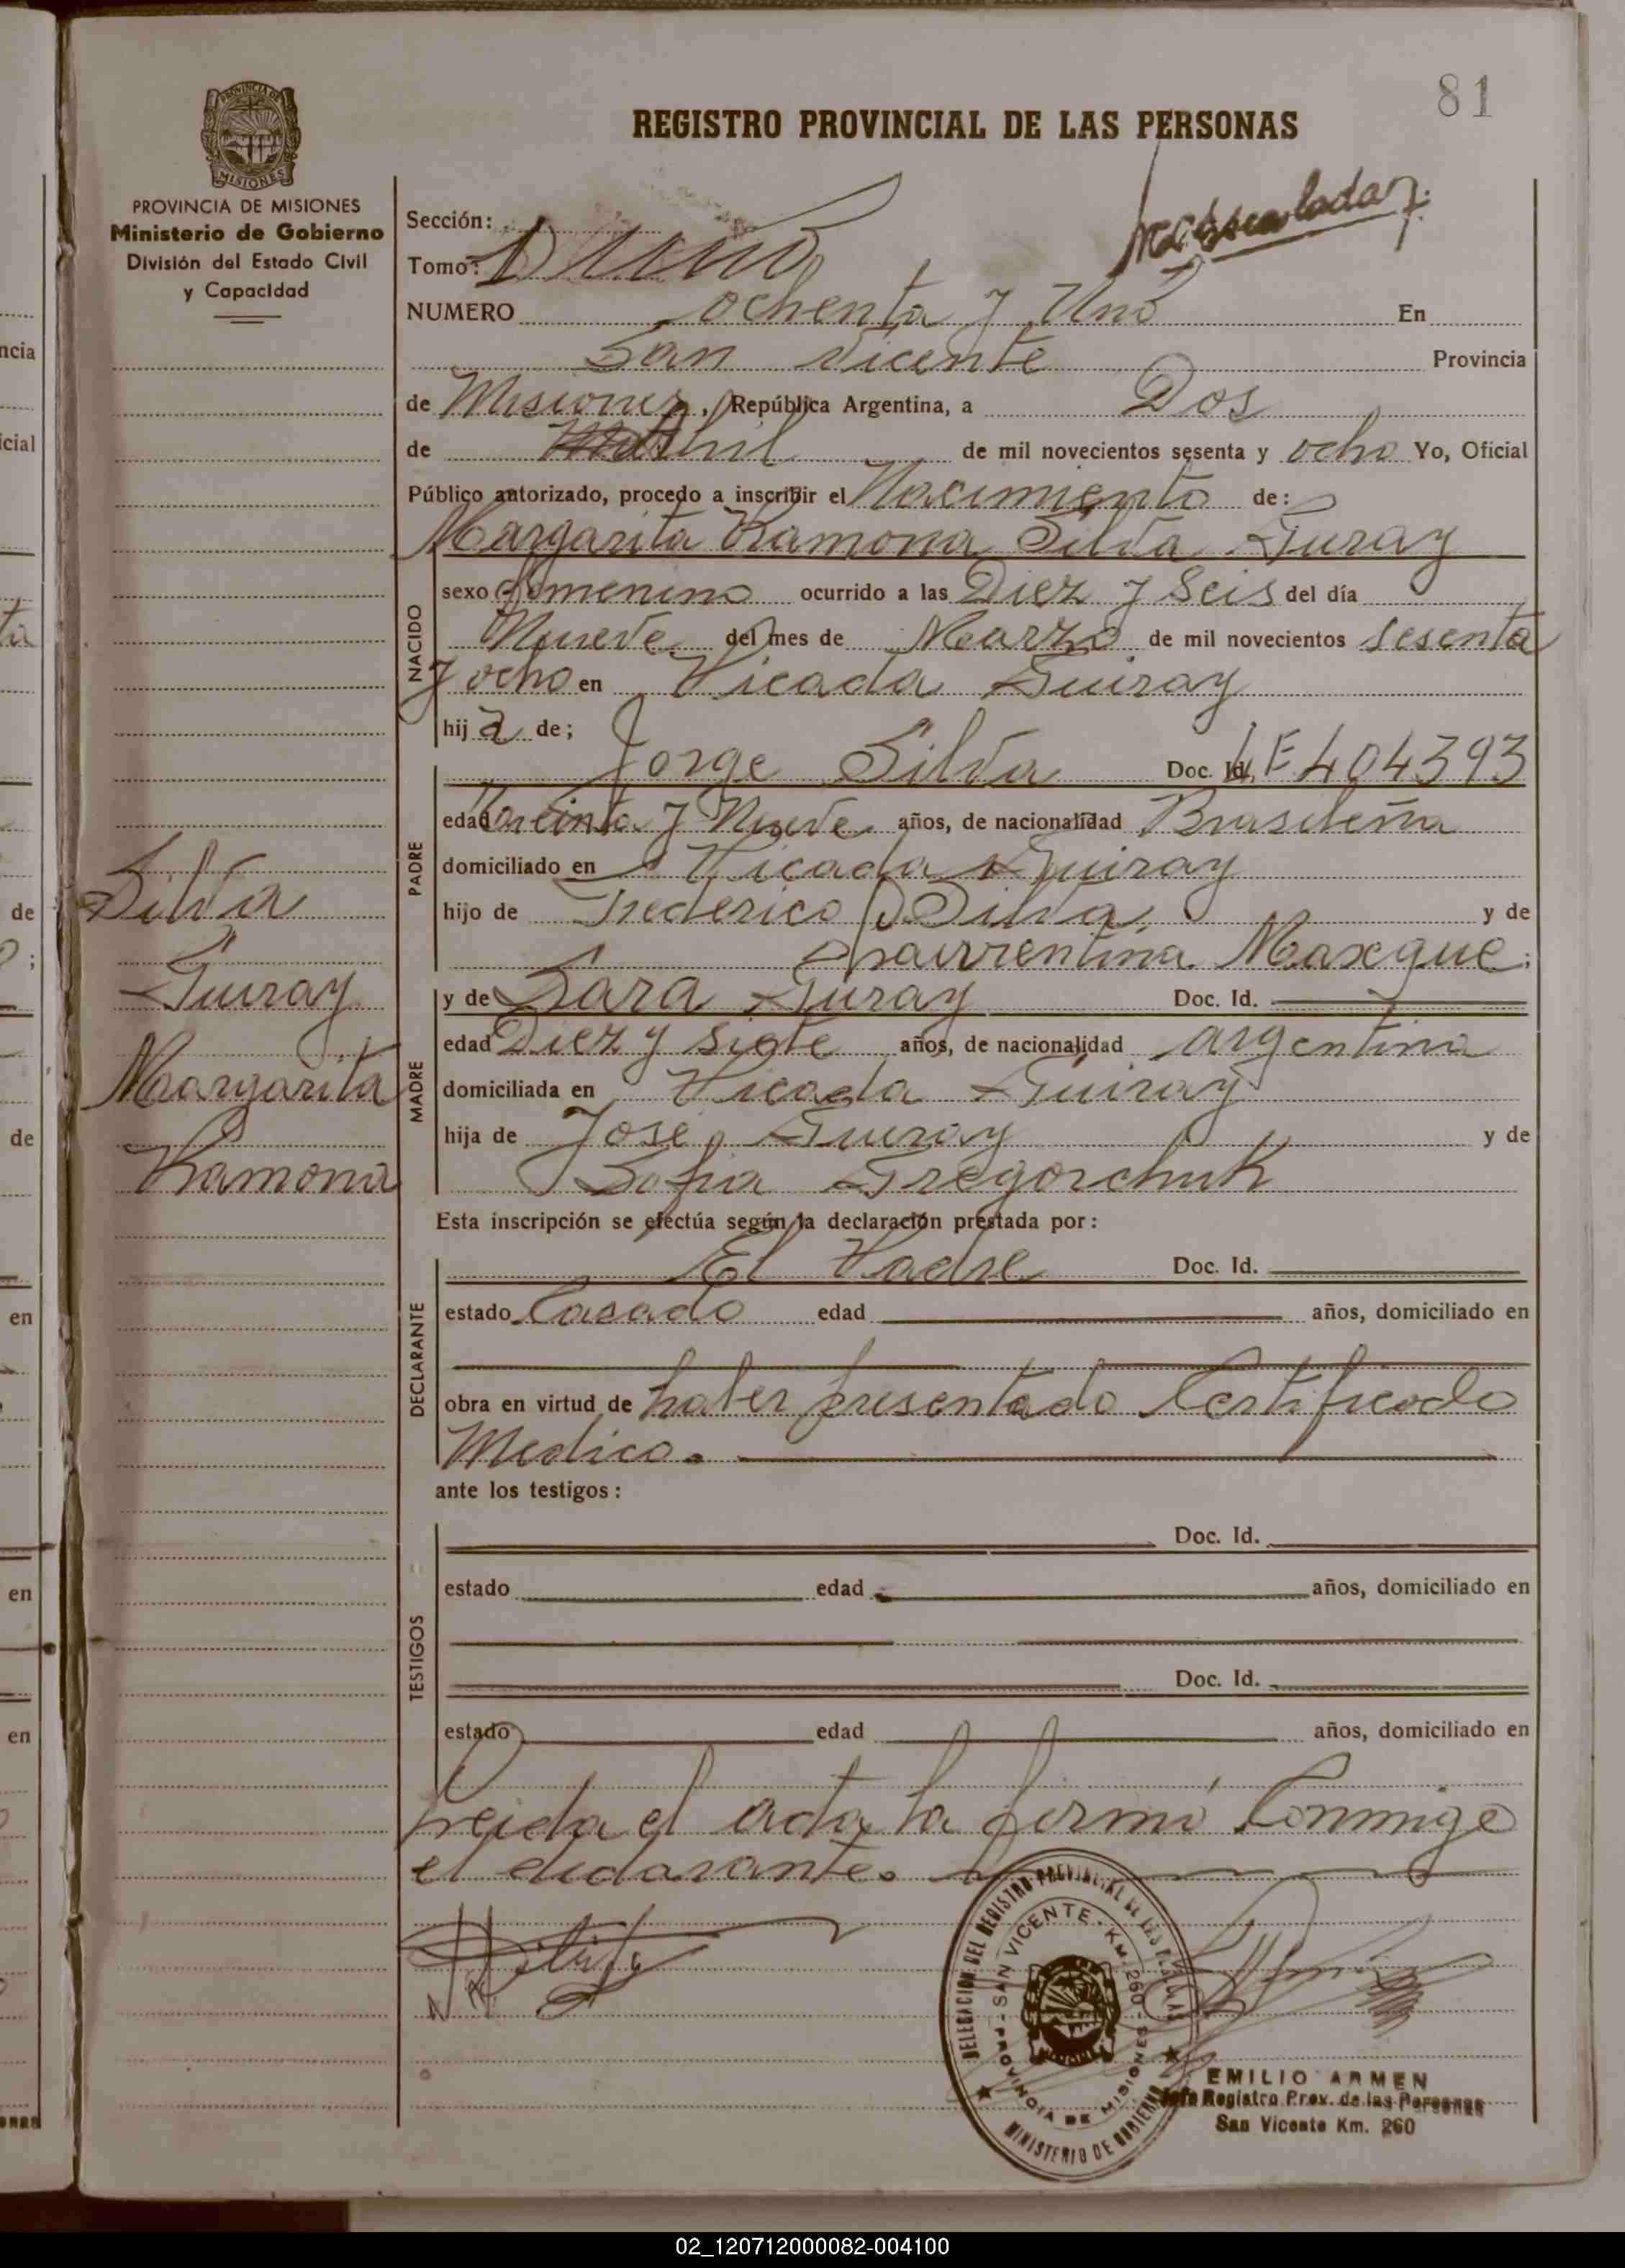 81
REGISTRO PROVINCIAL DE LAS PERSONAS
PROVINCIA DE MISIONES
Ministerio de Gobierno
División del Estado Civil
y Capacidad
Sección:
Tomo:
NUMERO ochenta y Uno En
San Vicente Provincia
de Misiones, República Argentina, a Dos
de Abril de mil novecientos sesenta y ocho Yo, Oficial
Público autorizado, procedo a inscribir el Nacimiento de:
Margarita Ramona Silva Guray
NACIDO
sexo femenino ocurrido a las Diez y Seis del día
Nueve del mes de Marzo de mil novecientos sesenta
y ocho en Picada Guiray
hija de;
PADRE
Jorge Silva Doc. Id. LE 404393
edad treinta y Nueve años, de nacionalidad Brasileña
domiciliado en Picada Guiray
hijo de Frederico D Silva y de
y de Sara Guray Doc. Id.
MADRE
edad Diez y siete años, de nacionalidad argentina
domiciliada en Picada Guiray
hija de Jose Guiray y de
Sofia Gregorchuk
Silva
Guiray
Margarita
Ramona
Esta inscripción se efectúa según la declaración prestada por:
DECLARANTE
El Padre Doc. Id.
estado Casado edad años, domiciliado en
obra en virtud de haber presentado Certificado
Medico.
ante los testigos:
TESTIGOS
Doc. Id.
estado edad años, domiciliado en
Doc. Id.
estado edad años, domiciliado en
Leida el acta la firmó Conmigo
el declarante.
DELEGACION DEL REGISTRO PROVINCIAL DE LAS PERSONAS
SAN VICENTE - KM. 260 - PROVINCIA DE MISIONES
MINISTERIO DE GOBIERNO
EMILIO ARMEN
Jefe Registro Prov. de las Personas
San Vicente Km. 260
02_120712000082-004100